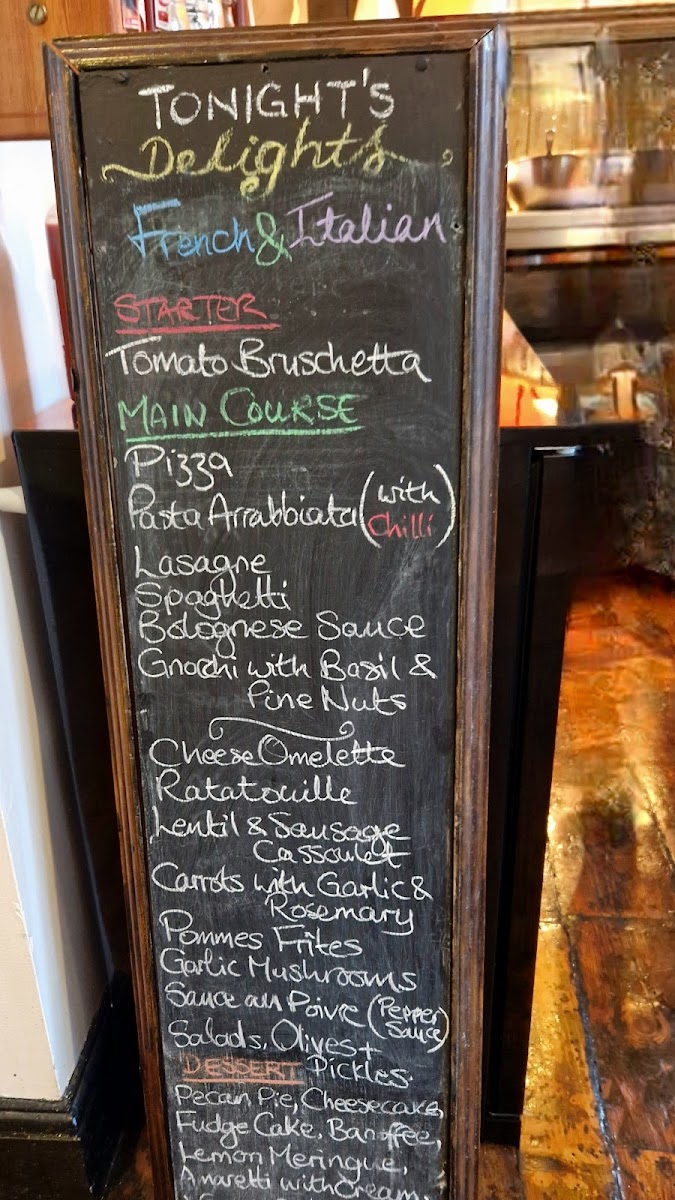 TONIGHT'S
Delights
French & Italian
STARTER
Tomato Bruschetta
MAIN COURSE
Pizza
Pasta Arrabbiata (with Chilli)
Lasagne
Spaghetti
Bolognese Sauce
Gnocchi with Basil &
Pine Nuts
Cheese Omelette
Ratatouille
Lentil & Sausage
Cassoulet
Carrots with Garlic &
Rosemary
Pommes Frites
Garlic Mushrooms
Sauce au Poivre (Pepper Sauce)
Salads, Olives +
DESSERT Pickles.
Pecan Pie, Cheesecake,
Fudge Cake, Banoffee,
Lemon Meringue,
Amaretti with Cream,